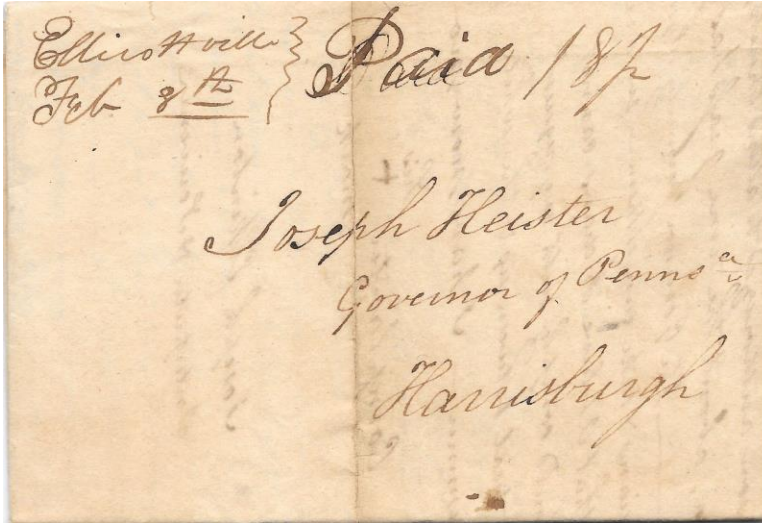 Ellicottville
Feb 8th
Paid 18½
Joseph Heister
Governor of Pennsa
Harrisburgh